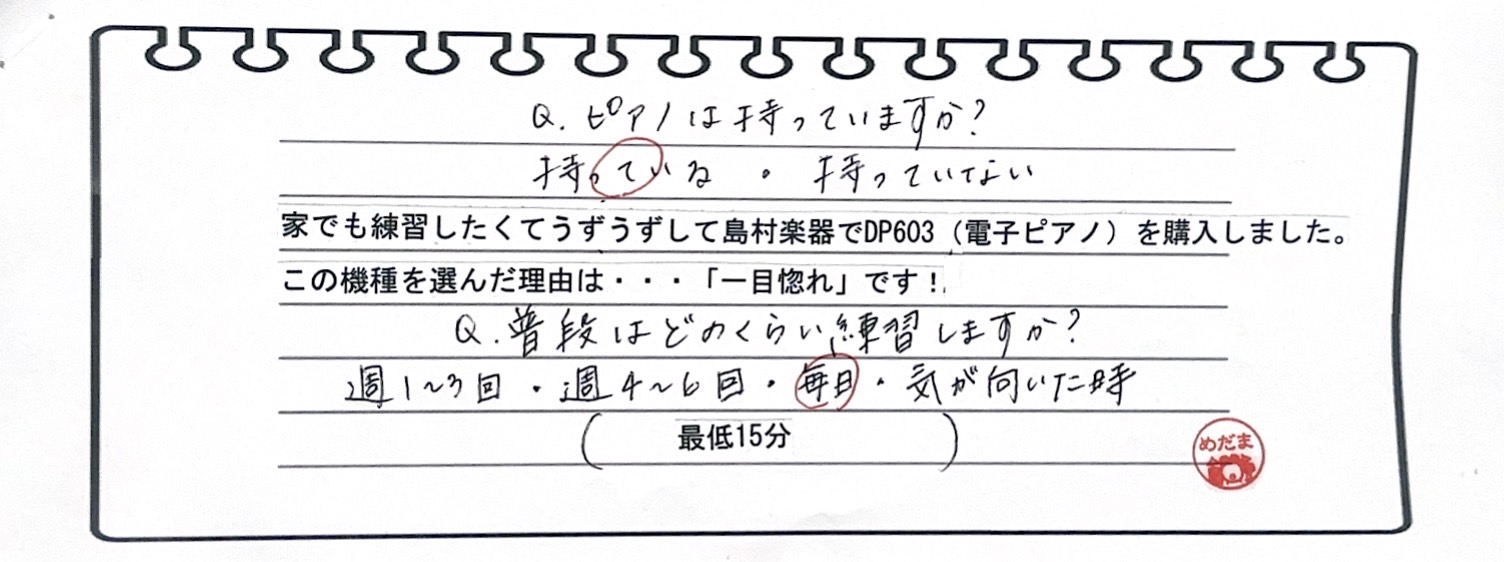 Q. ピアノは持っていますか?
持っている ・ 持っていない
家でも練習したくてうずうずして島村楽器でDP603（電子ピアノ）を購入しました。
この機種を選んだ理由は・・・「一目惚れ」です！
Q. 普段はどのくらい練習しますか?
週1～3回 ・ 週4～6回 ・ 毎日 ・ 気が向いた時
( 最低15分 )
めだま